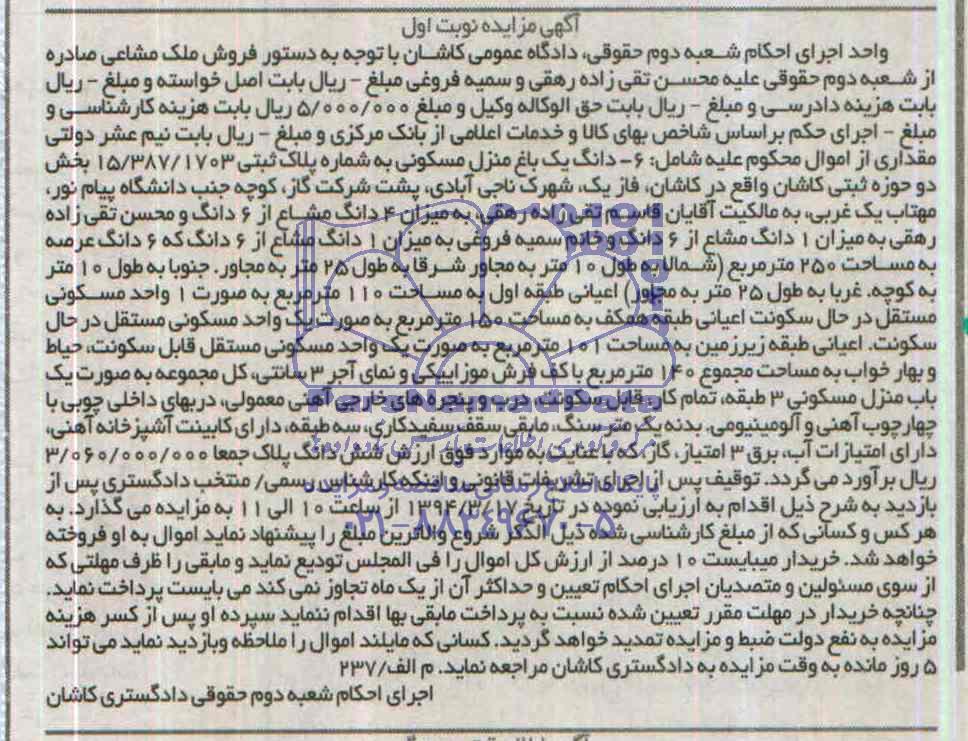 آگهی مزایده نوبت اول
واحد اجرای احکام شعبه دوم حقوقی، دادگاه عمومی کاشان با توجه به دستور فروش ملک مشاعی صادره
از شعبه دوم حقوقی علیه محسن تقی زاده رهقی و سمیه فروغی مبلغ - ریال بابت اصل خواسته و مبلغ - ریال
بابت هزینه دادرسی و مبلغ - ریال بابت حق الوکاله وکیل و مبلغ ۵/۰۰۰/۰۰۰ ریال بابت هزینه کارشناسی و
مبلغ - اجرای حکم براساس شاخص بهای کالا و خدمات اعلامی از بانک مرکزی و مبلغ - ریال بابت نیم عشر دولتی
مقداری از اموال محکوم علیه شامل: ۶- دانگ یک باغ منزل مسکونی به شماره پلاک ثبتی ۱۵/۳۸۷/۱۷۰۳ بخش
دو حوزه ثبتی کاشان واقع در کاشان، فاز یک، شهرک ناجی آبادی، پشت شرکت گاز، کوچه جنب دانشگاه پیام نور،
مهتاب یک غربی، به مالکیت آقایان قاسم تقی زاده رهقی، به میزان ۴ دانگ مشاع از ۶ دانگ و محسن تقی زاده
رهقی به میزان ۱ دانگ مشاع از ۶ دانگ و خانم سمیه فروغی به میزان ۱ دانگ مشاع از ۶ دانگ که ۶ دانگ عرصه
به مساحت ۲۵۰ مترمربع (شمالا به طول ۱۰ متر به مجاور شرقا به طول ۲۵ متر به مجاور. جنوبا به طول ۱۰ متر
به کوچه. غربا به طول ۲۵ متر به مجاور) اعیانی طبقه اول به مساحت ۱۱۰ مترمربع به صورت ۱ واحد مسکونی
مستقل در حال سکونت اعیانی طبقه همکف به مساحت ۱۵۰ مترمربع به صورت یک واحد مسکونی مستقل در حال
سکونت. اعیانی طبقه زیرزمین به مساحت ۱۰۱ مترمربع به صورت یک واحد مسکونی مستقل قابل سکونت، حیاط
و بهار خواب به مساحت مجموع ۱۴۰ مترمربع با کف فرش موزاییکی و نمای آجر ۳ سانتی، کل مجموعه به صورت یک
باب منزل مسکونی ۳ طبقه، تمام کار، قابل سکونت، درب و پنجره های خارجی آهنی معمولی، دربهای داخلی چوبی با
چهارچوب آهنی و آلومینیومی. بدنه یک متر سنگ، مابقی سقف سفیدکاری، سه طبقه، دارای کابینت آشپزخانه آهنی،
دارای امتیازات آب، برق ۳ امتیاز، گاز، که با عنایت به موارد فوق ارزش شش دانگ پلاک جمعا ۳/۰۶۰/۰۰۰/۰۰۰
ریال برآورد می گردد. توقیف پس از اجرای تشریفات قانونی و اینکه کارشناس رسمی/ منتخب دادگستری پس از
بازدید به شرح ذیل اقدام به ارزیابی نموده در تاریخ ۱۳۹۴/۳/۱۷ از ساعت ۱۰ الی ۱۱ به مزایده می گذارد. به
هر کس و کسانی که از مبلغ کارشناسی شده ذیل الذکر شروع والاترین مبلغ را پیشنهاد نماید اموال به او فروخته
خواهد شد. خریدار میبایست ۱۰ درصد از ارزش کل اموال را فی المجلس تودیع نماید و مابقی را ظرف مهلتی که
از سوی مسئولین و متصدیان اجرای احکام تعیین و حداکثر آن از یک ماه تجاوز نمی کند می بایست پرداخت نماید.
چنانچه خریدار در مهلت مقرر تعیین شده نسبت به پرداخت مابقی بها اقدام ننماید سپرده او پس از کسر هزینه
مزایده به نفع دولت ضبط و مزایده تمدید خواهد گردید. کسانی که مایلند اموال را ملاحظه وبازدید نماید می تواند
۵ روز مانده به وقت مزایده به دادگستری کاشان مراجعه نماید. م الف/۲۳۷
اجرای احکام شعبه دوم حقوقی دادگستری کاشان
ParsNamadData
پایگاه اطلاع رسانی مناقصه و مزایده
۰۲۱-۸۸۳۴۹۶۷۰-۵